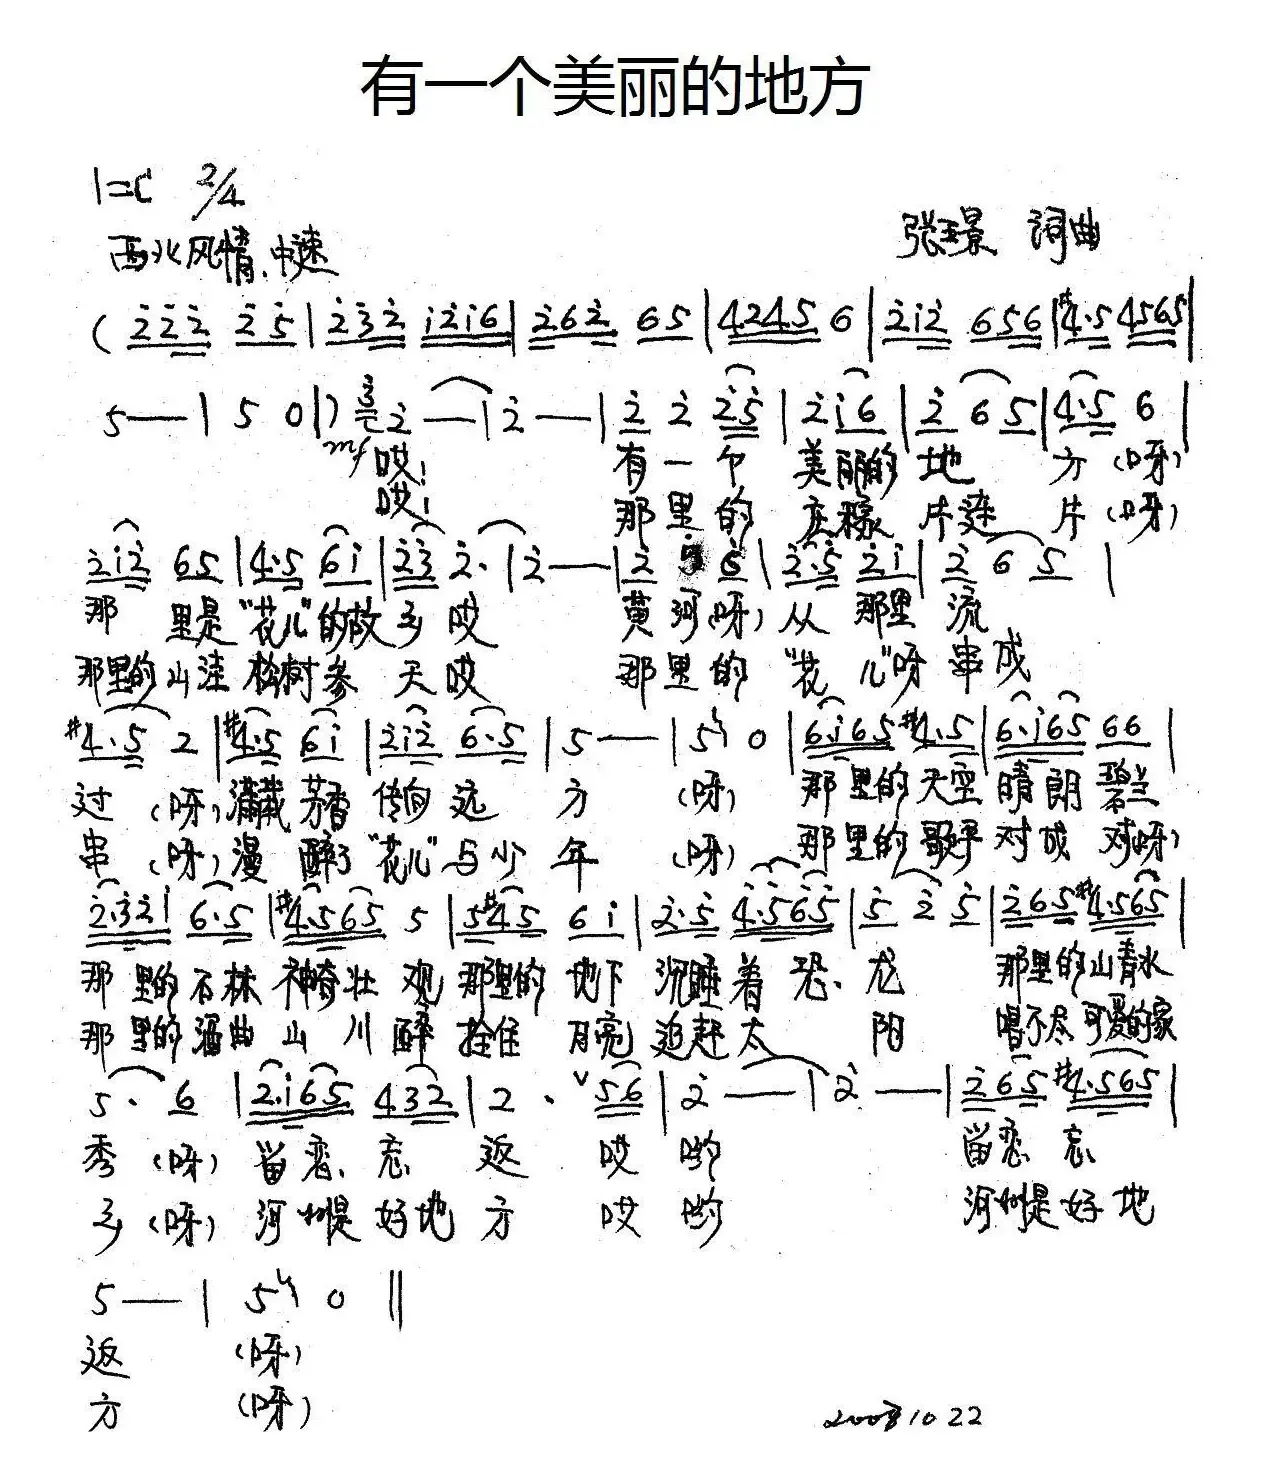 有一个美丽的地方
1=C 2/4
西北风情、中速
张璟 词曲
(2̇2̇2̇ 2̇5̇|2̇3̇2̇ i2̇i6|2̇62̇ 65|4245 6|2̇i2̇ 656|#4·5 4565|
5—|5 0|)3̇2̇—|2̇—|2̇ 2̇ 2̇5̇|2̇i6|2̇ 65|4·5 6|
mf
哎! 有一个 美丽的 地 方(呀)
哎! 那里的 庄稼 片连 片(呀)
2̇i2̇ 65|4·5 6i|2̇3̇ 2̇·|2̇—|2̇ 5̇ 6|2̇·5̇ 2̇i|2̇ 6 5|
那 里是"花儿"的故乡 哎 黄河(呀)从 那里 流
那里的山洼 松树参 天哎 那里的 "花 儿"呀串成
#4·5 2|#4·5 6i|2̇i2̇ 6·5|5—|5 0|6·i65 #4·5|6·i65 66|
过 (呀)满载 芬香 传向 远 方 (呀) 那里的天空 晴朗 碧兰
串 (呀)漫 醉了"花儿"与少 年 (呀) 那里的歌乎 对成 对(呀)
2̇·3̇2̇i 6·5|#4·565 5|5#45 6i|2̇·5̇ 4̇·5̇6̇5̇|5̇ 2̇ 5̇|2̇65 #4·565|
那 里的石林 神奇壮 观 那里的 地下 沉睡着 恐、龙 那里的山青水
那 里的酒曲 山 川 醉 拴住 月亮 追赶太 阳 唱不尽可爱的家
5· 6|2̇·i65 432|2· ∨56|2̇—|2̇—|2̇65 #4·565|
秀 (呀) 留恋、忘、 返 哎 哟 留恋、忘、
乡 (呀) 河州是 好地 方 哎 哟 河州是好 地
5—|5 0‖
返 (呀)
方 (呀)
2008 10 22